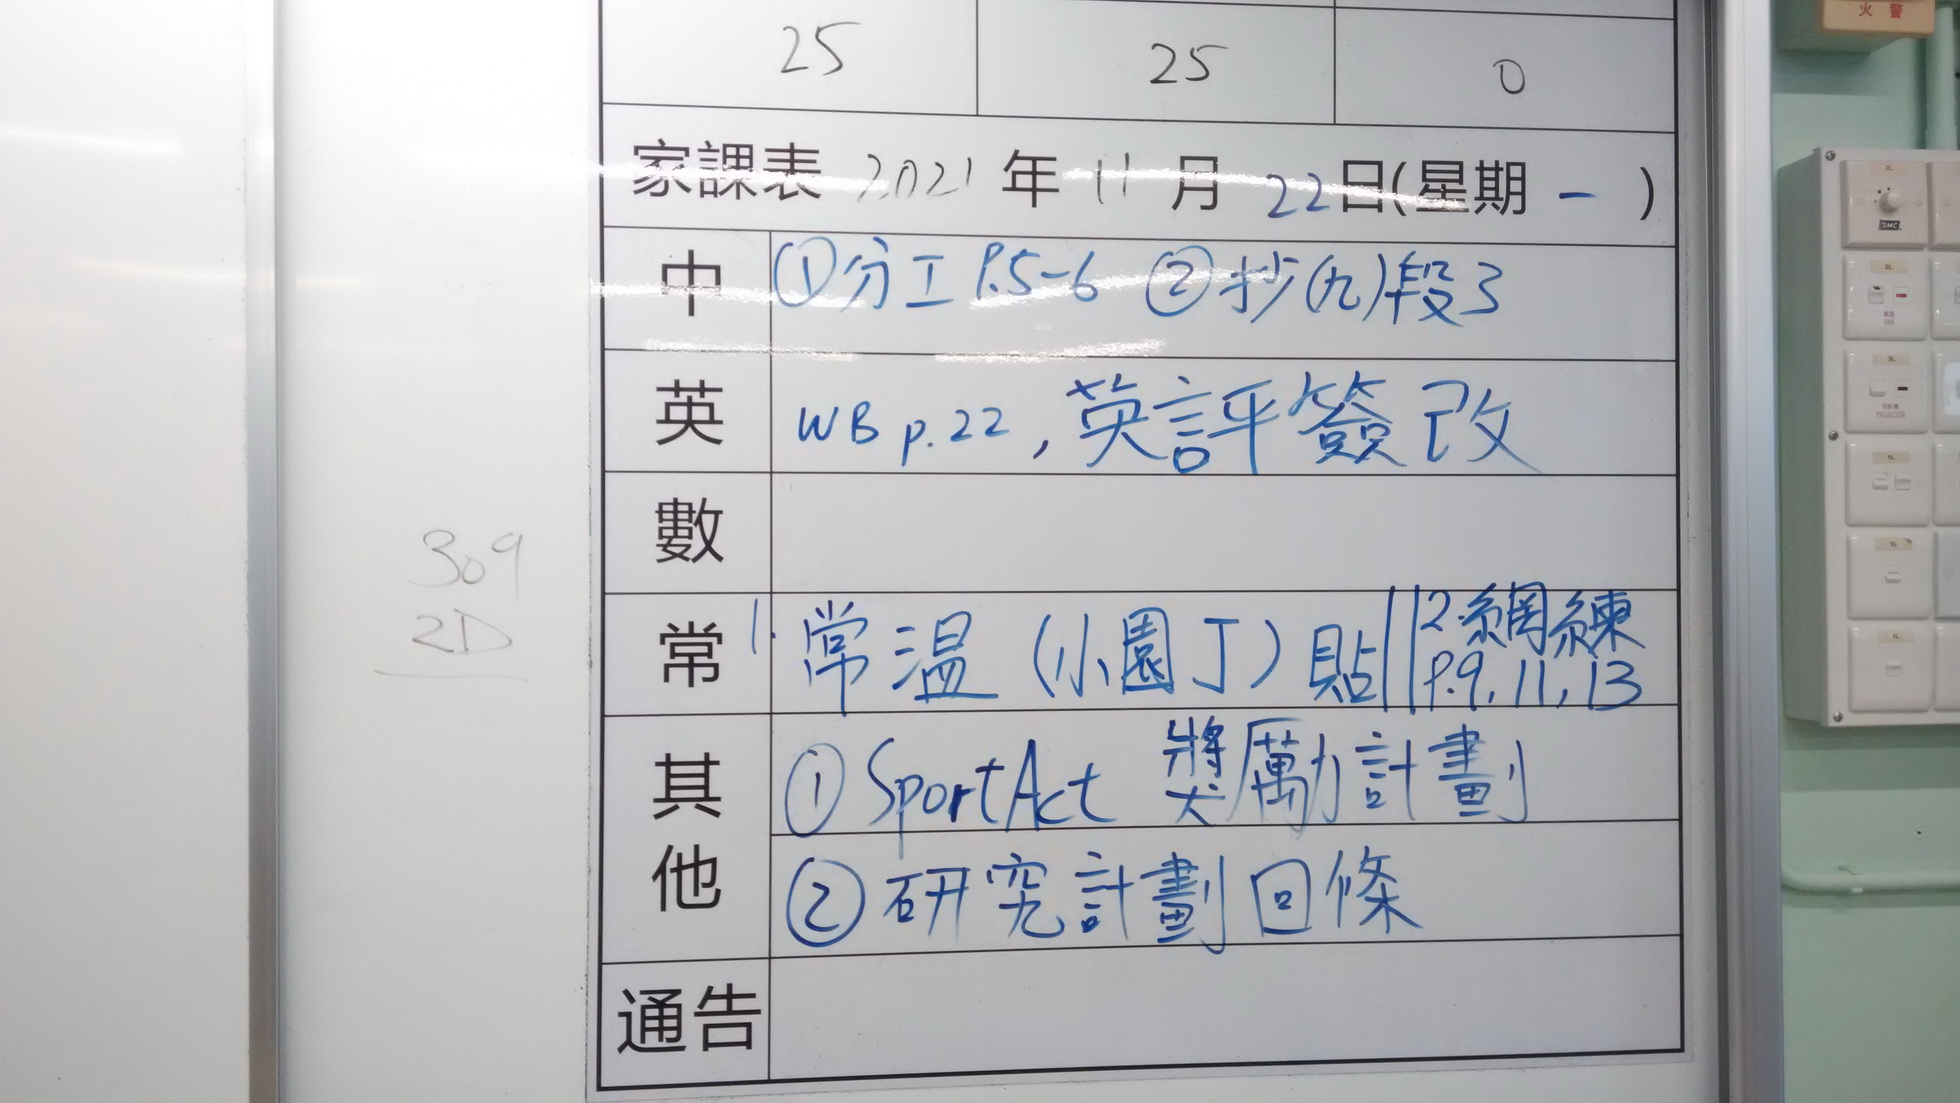 火警
25 25 0
家課表 2021 年 11 月 22日(星期 一 )
中 ①分工 P.5-6 ②抄(九)段3
英 WB p.22, 英評簽改
數
常 1. 常溫(小園丁)貼 || 2.網練
P.9, 11, 13
309
2D
其他 ① SportAct 獎勵計劃
② 研究計劃回條
通告